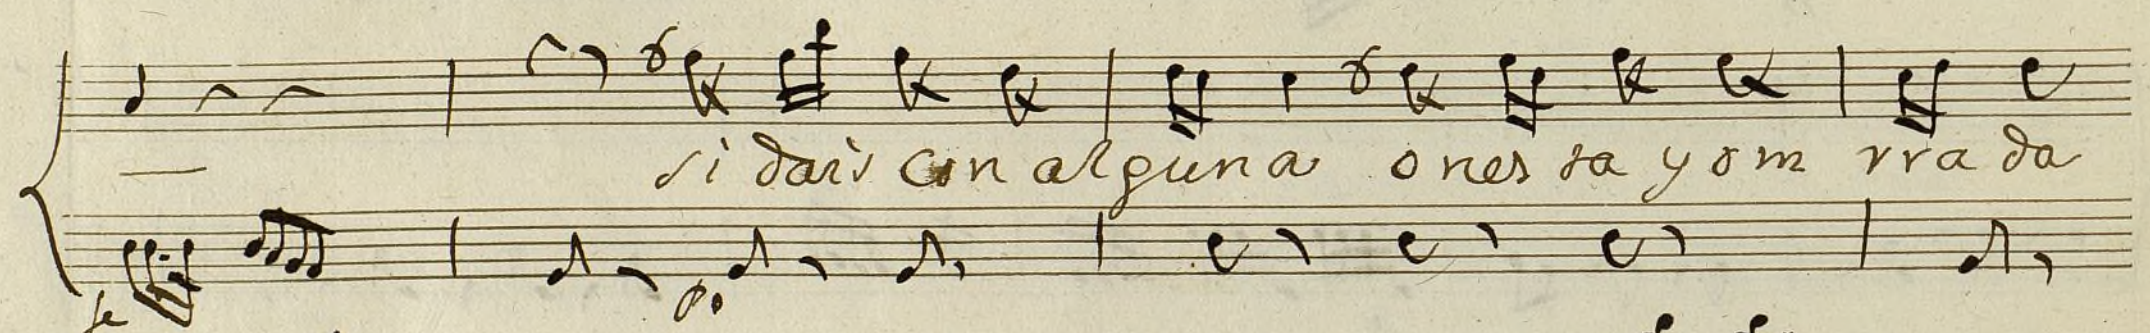 si dais con alguna onesta y om rrada
fe
po